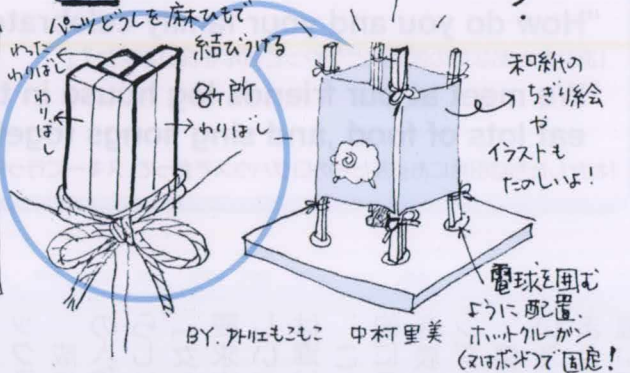 パーツどうしを麻ひもで
結びつける
8ヶ所
わりばし
わりばし
わりばし
和紙の
ちぎり絵
や
イラストも
たのしいよ!
電球を囲む
ように配置.
ホットグルーガン
(又はボンド)で固定!
BY. アトリエもこもこ 中村里美